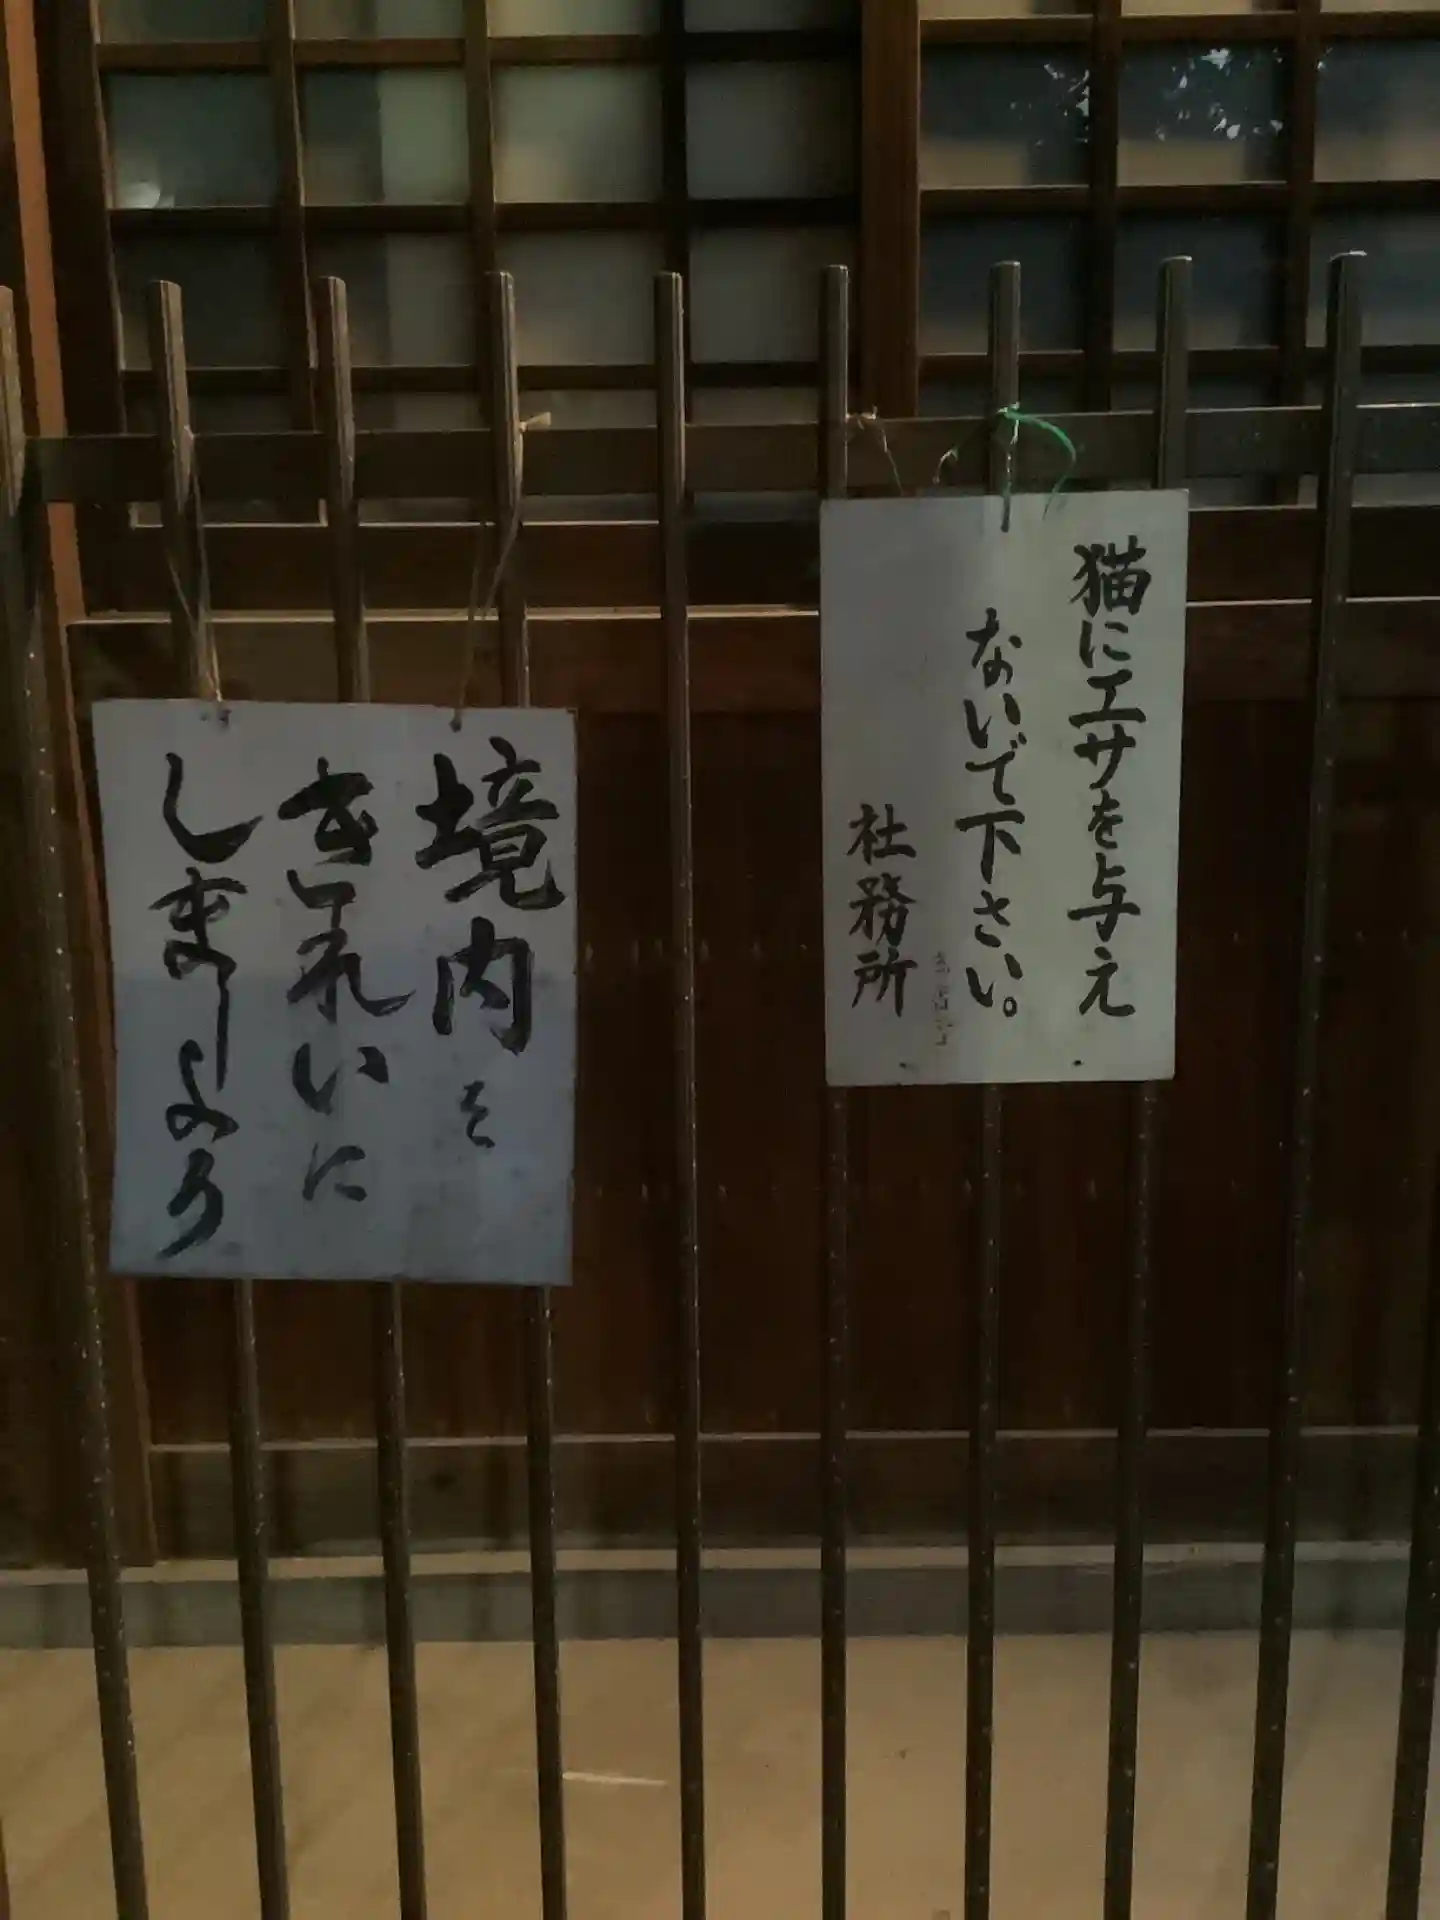 猫にエサを与え
ないで下さい。
社務所
境内を
きれいに
しましょう